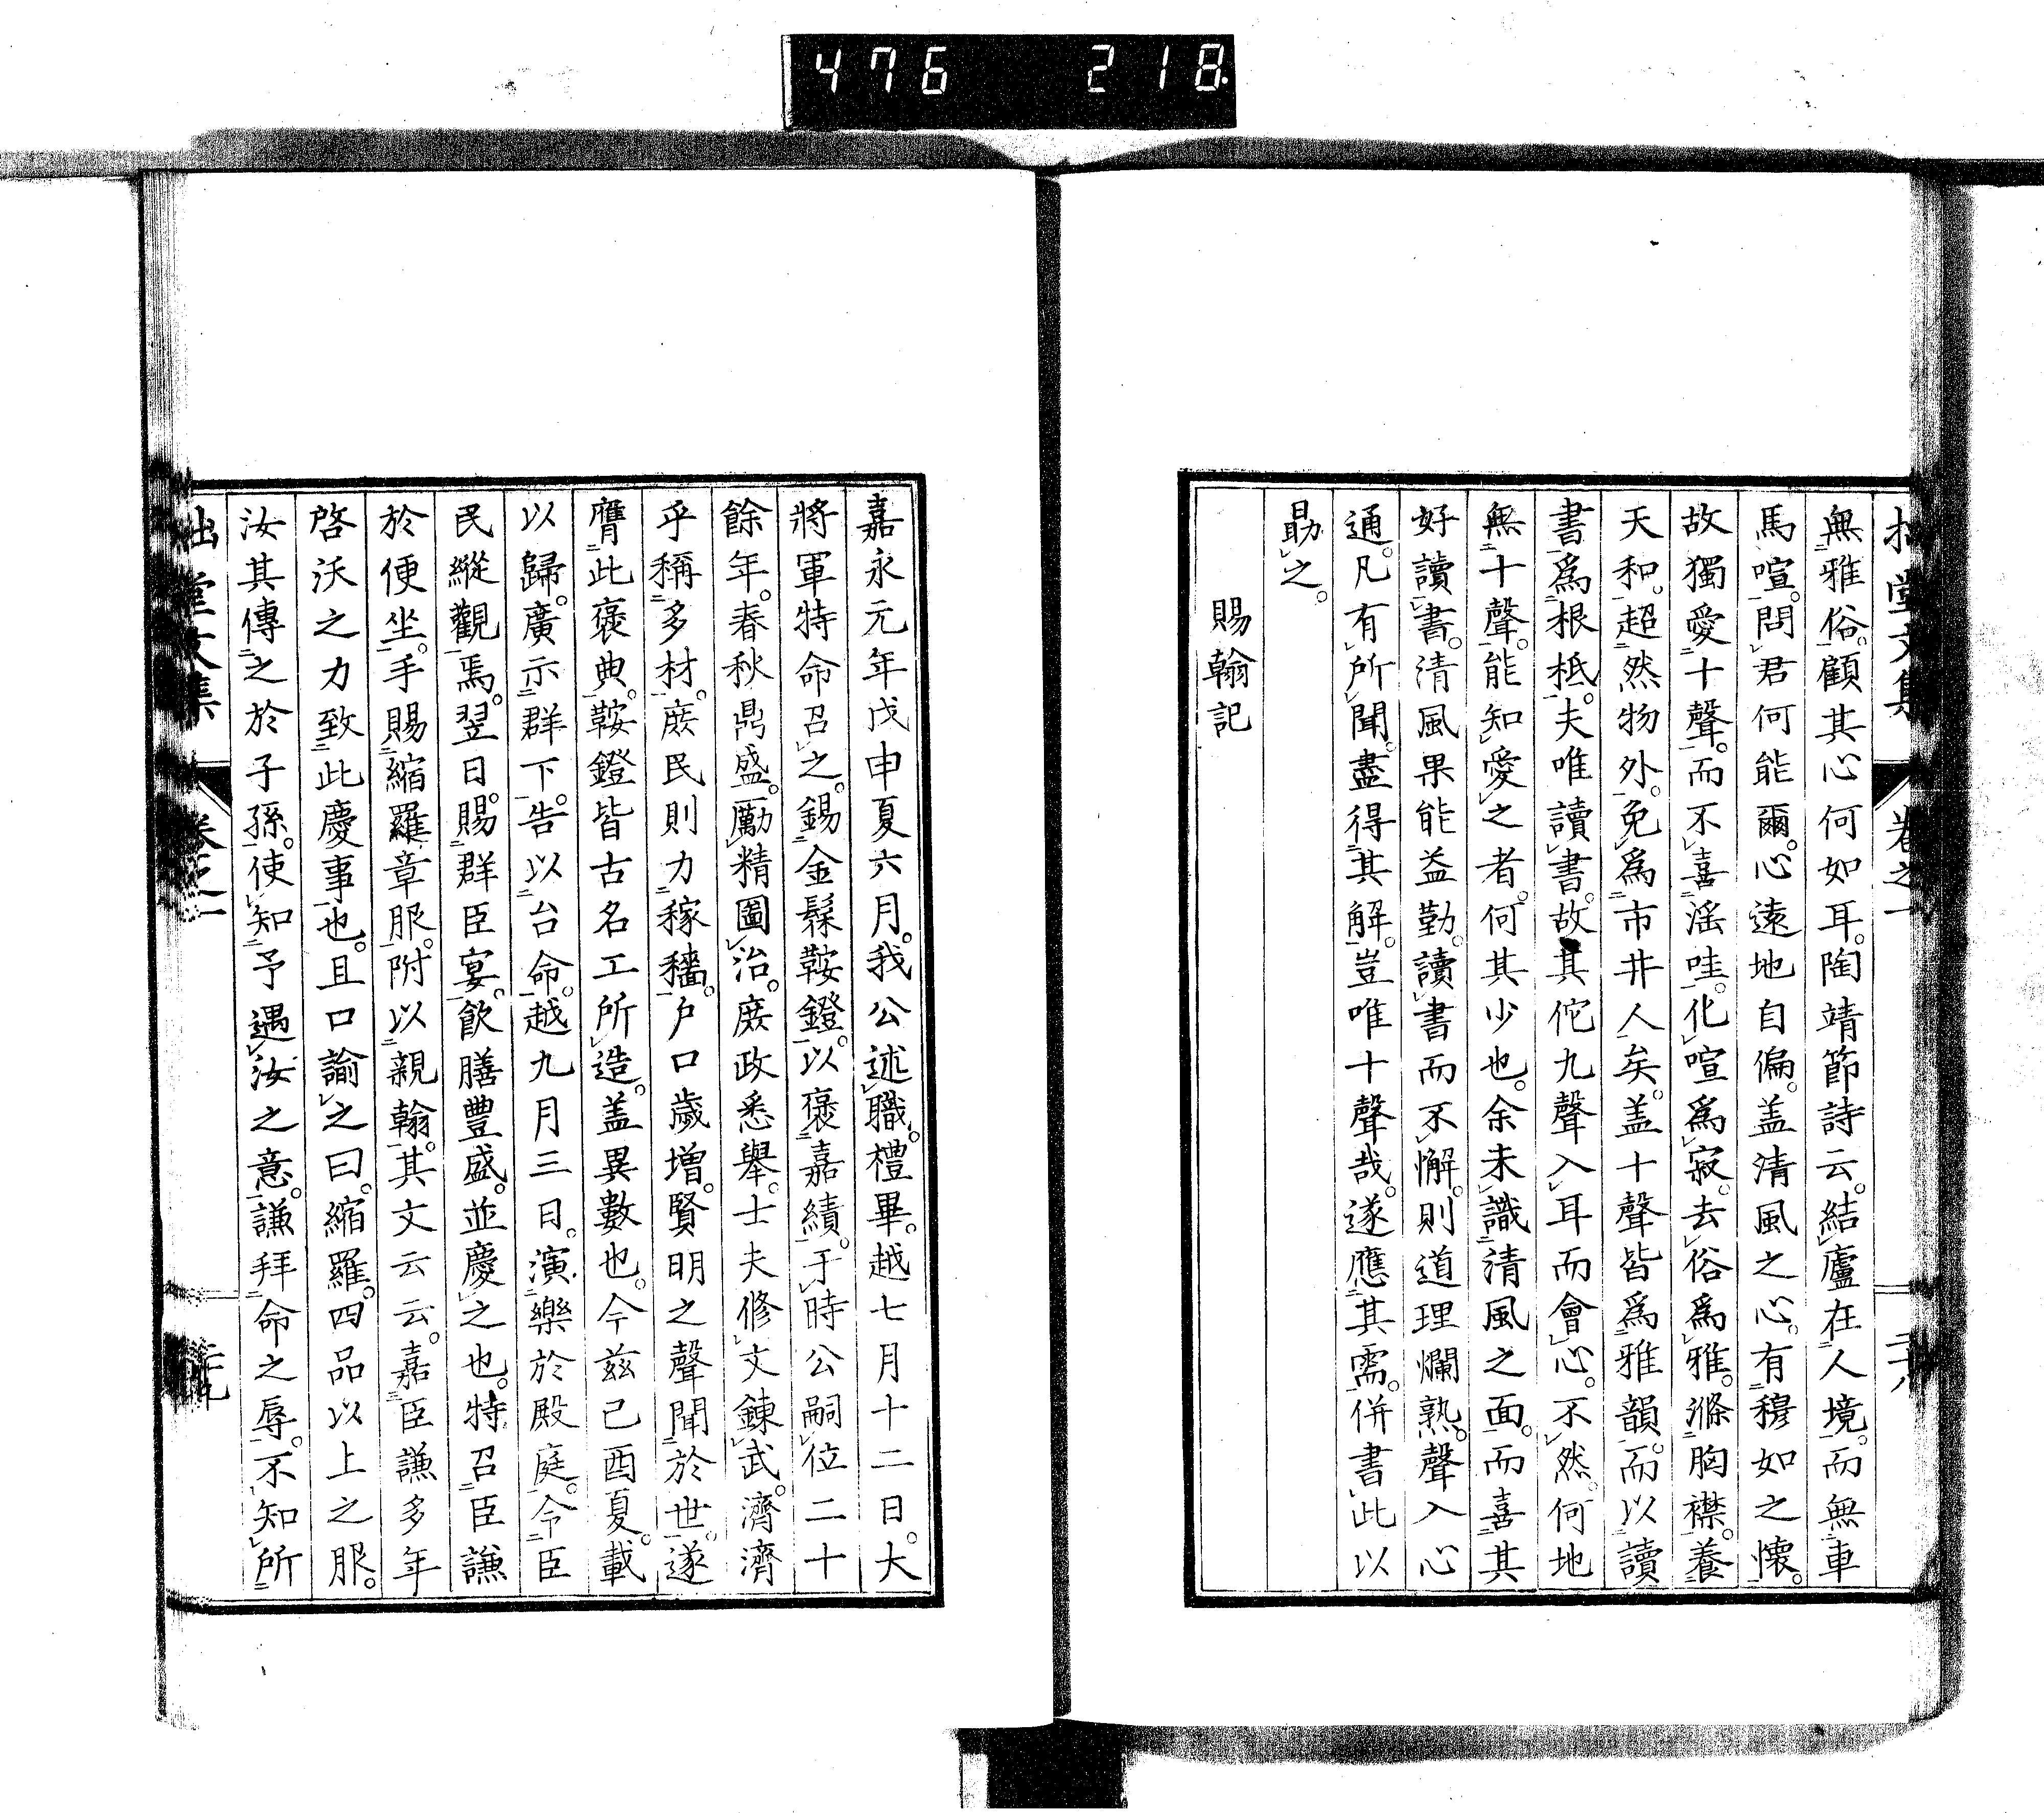 476 218
拙堂文集 卷之一 二十八
無雅俗。顧其心何如耳。陶靖節詩云。結廬在人境。而無車
馬喧。問君何能爾。心遠地自偏。盖清風之心。有穆如之懷。
故獨愛十聲。而不喜滛哇。化喧爲寂。去俗爲雅。滌胸襟。養
天和。超然物外。免爲市井人矣。盖十聲皆爲雅韻。而以讀
書爲根柢。夫唯讀書。故其佗九聲入耳而會心。不然。何地
無十聲。能知愛之者。何其少也。余未識清風之面。而喜其
好讀書。清風果能益勤。讀書而不懈。則道理爛熟。聲入心
通。凡有所聞。盡得其解。豈唯十聲哉。遂應其需。併書此以
勗之。
賜翰記
嘉永元年戊申夏六月。我公述職。禮畢。越七月十二日。大
將軍特命召之。錫金髹鞍鐙。以褒嘉績。于時公嗣位二十
餘年。春秋鼎盛。勵精圖治。庶政悉舉。士夫修文鍊武。濟濟
乎稱多材。庶民則力稼穡。戶口歲增。賢明之聲聞於世。遂
膺此褒典。鞍鐙皆古名工所造。盖異數也。今兹己酉夏。載
以歸。廣示群下。告以台命。越九月三日。演樂於殿庭。令臣
民縱觀焉。翌日。賜群臣宴。飮膳豐盛。並慶之也。特召臣謙
於便坐。手賜縮羅章服。附以親翰。其文云云。嘉臣謙多年
啓沃之力致此慶事也。且口諭之曰。縮羅。四品以上之服。
汝其傳之於子孫。使知予遇汝之意。謙拜命之辱。不知所
拙堂文集 卷之一 二十九